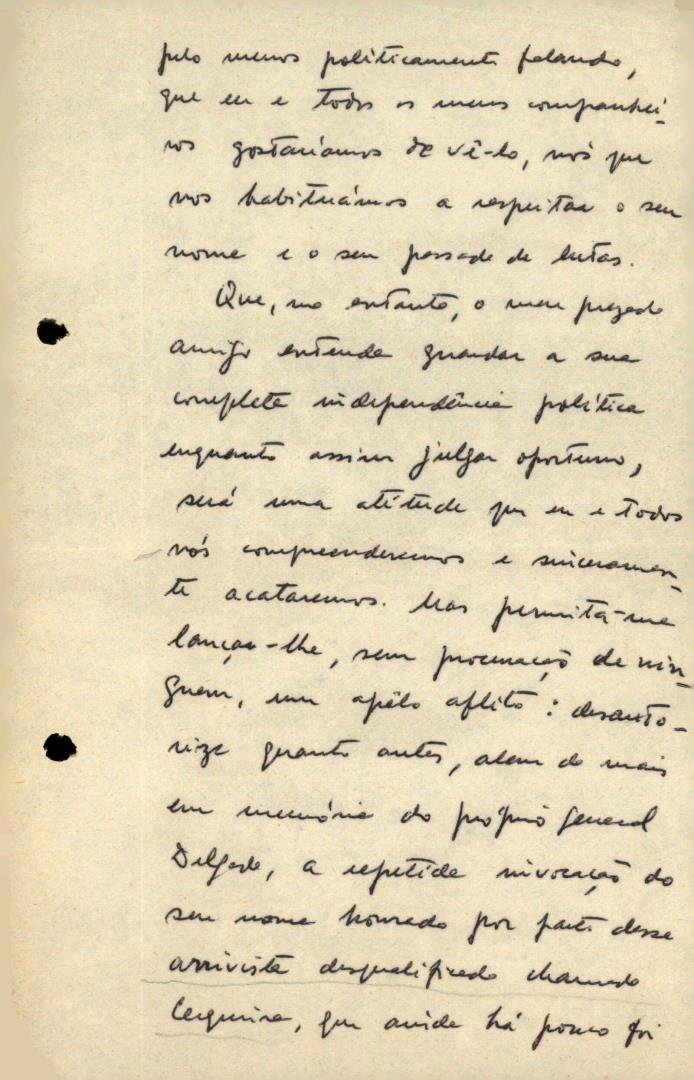 pelo menos politicamente falando,
que eu e todos os meus companhei-
ros gostaríamos de vê-lo, nós que
nos habituámos a respeitar o seu
nome e o seu passado de lutas.
Que, no entanto, o meu prezado
amigo entenda guardar a sua
completa independência política
enquanto assim julgar oportuno,
será uma atitude que eu e todos
nós compreenderemos e sinceramen-
te acataremos. Mas permita-me
lançar-lhe, sem procuração de nin-
guem, um apêlo aflito: desauto-
rize quanto antes, alem do mais
em memória do próprio general
Delgado, a repetida invocação do
seu nome honrado por parte desse
arrivista desqualificado chamado
Cerqueira, que ainda há pouco foi